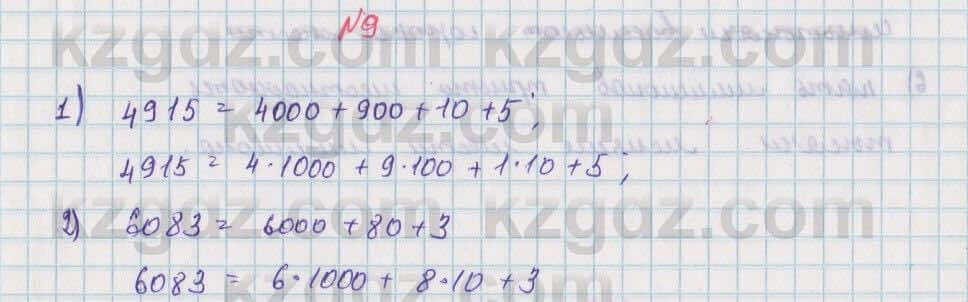 №9
1) 4915 = 4000 + 900 + 10 + 5;
4915 = 4·1000 + 9·100 + 1·10 + 5;
2) 6083 = 6000 + 80 + 3
6083 = 6·1000 + 8·10 + 3
kzgdz.com